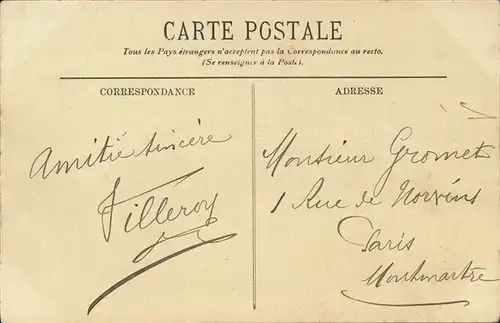 CARTE POSTALE
Tous les Pays étrangers n'acceptent pas la Correspondance au recto.
(Se renseigner à la Poste).
CORRESPONDANCE
Amitié sincère
Villeroy
ADRESSE
Monsieur Gromet
1 Rue de Norvins
Paris
Montmartre